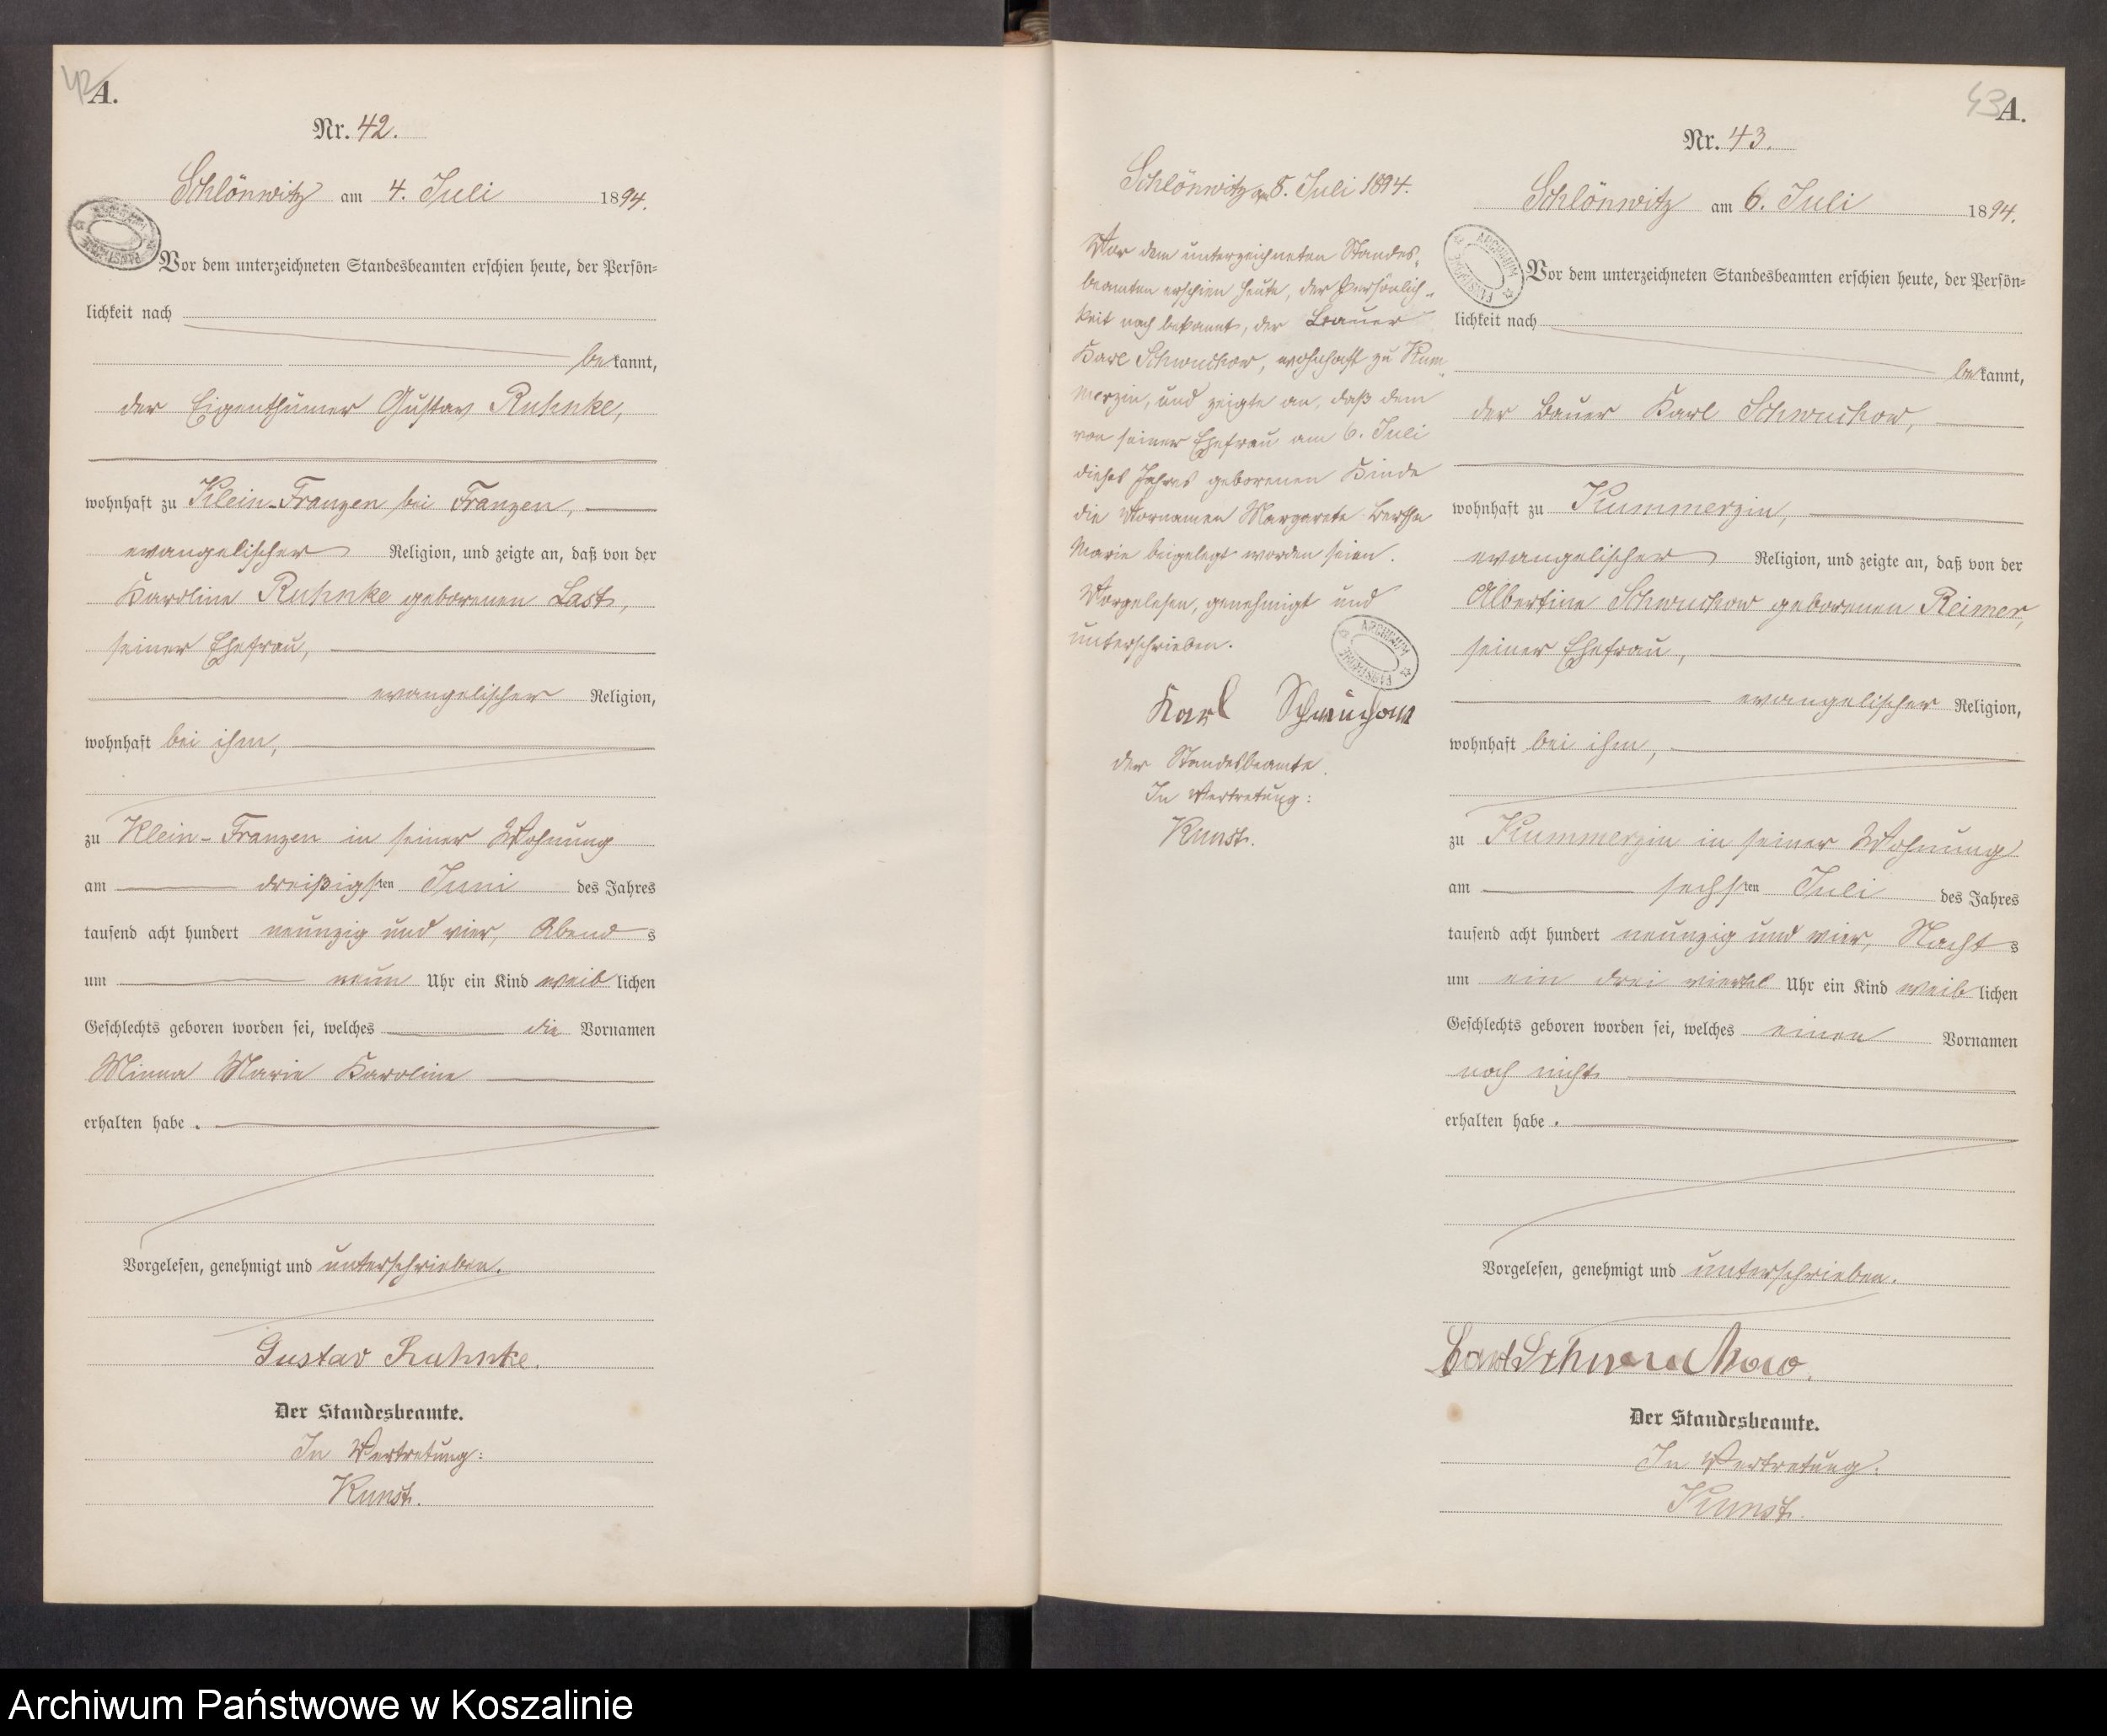 42
A.
Nr. 42.
Schlönwitz am 4. Juli 1894.
Vor dem unterzeichneten Standesbeamten erschien heute, der Persön=
lichkeit nach
bekannt,
der Eigenthümer Gustav Ruhnke,
wohnhaft zu Klein-Franzen bei Franzen,
evangelischer Religion, und zeigte an, daß von der
Karoline Ruhnke geborenen Last,
seiner Ehefrau,
evangelischer Religion,
wohnhaft bei ihm,
zu Klein-Franzen in seiner Wohnung
am dreißigsten Juni des Jahres
tausend acht hundert neunzig und vier, Abends
um neun Uhr ein Kind weiblichen
Geschlechts geboren worden sei, welches die Vornamen
Minna Marie Karoline
erhalten habe.
Vorgelesen, genehmigt und unterschrieben.
Gustav Ruhnke.
Der Standesbeamte.
In Vertretung:
Kunst.
Schlönwitz, 8. Juli 1894.
Vor dem unterzeichneten Standes=
beamten erschien heute, der Persönlich=
keit nach bekannt, der Bauer
Karl Schwuchow, wohnhaft zu Kum=
merzin, und zeigte an, daß dem
von seiner Ehefrau am 6. Juli
dieses Jahres geborenen Kinde
die Vornamen Margarete Bertha
Marie beigelegt worden seien.
Vorgelesen, genehmigt und
unterschrieben.
Karl Schwuchow
der Standesbeamte.
In Vertretung:
Kunst.
43
A.
Nr. 43.
Schlönwitz am 6. Juli 1894.
Vor dem unterzeichneten Standesbeamten erschien heute, der Persön=
lichkeit nach
bekannt,
der Bauer Karl Schwuchow,
wohnhaft zu Kummerzin,
evangelischer Religion, und zeigte an, daß von der
Albertine Schwuchow geborenen Reimer,
seiner Ehefrau,
evangelischer Religion,
wohnhaft bei ihm,
zu Kummerzin in seiner Wohnung
am sechsten Juli des Jahres
tausend acht hundert neunzig und vier, Nachts
um ein drei viertel Uhr ein Kind weiblichen
Geschlechts geboren worden sei, welches einen Vornamen
noch nicht
erhalten habe.
Vorgelesen, genehmigt und unterschrieben.
Carl Schwuchow.
Der Standesbeamte.
In Vertretung:
Kunst.
Archiwum Państwowe w Koszalinie